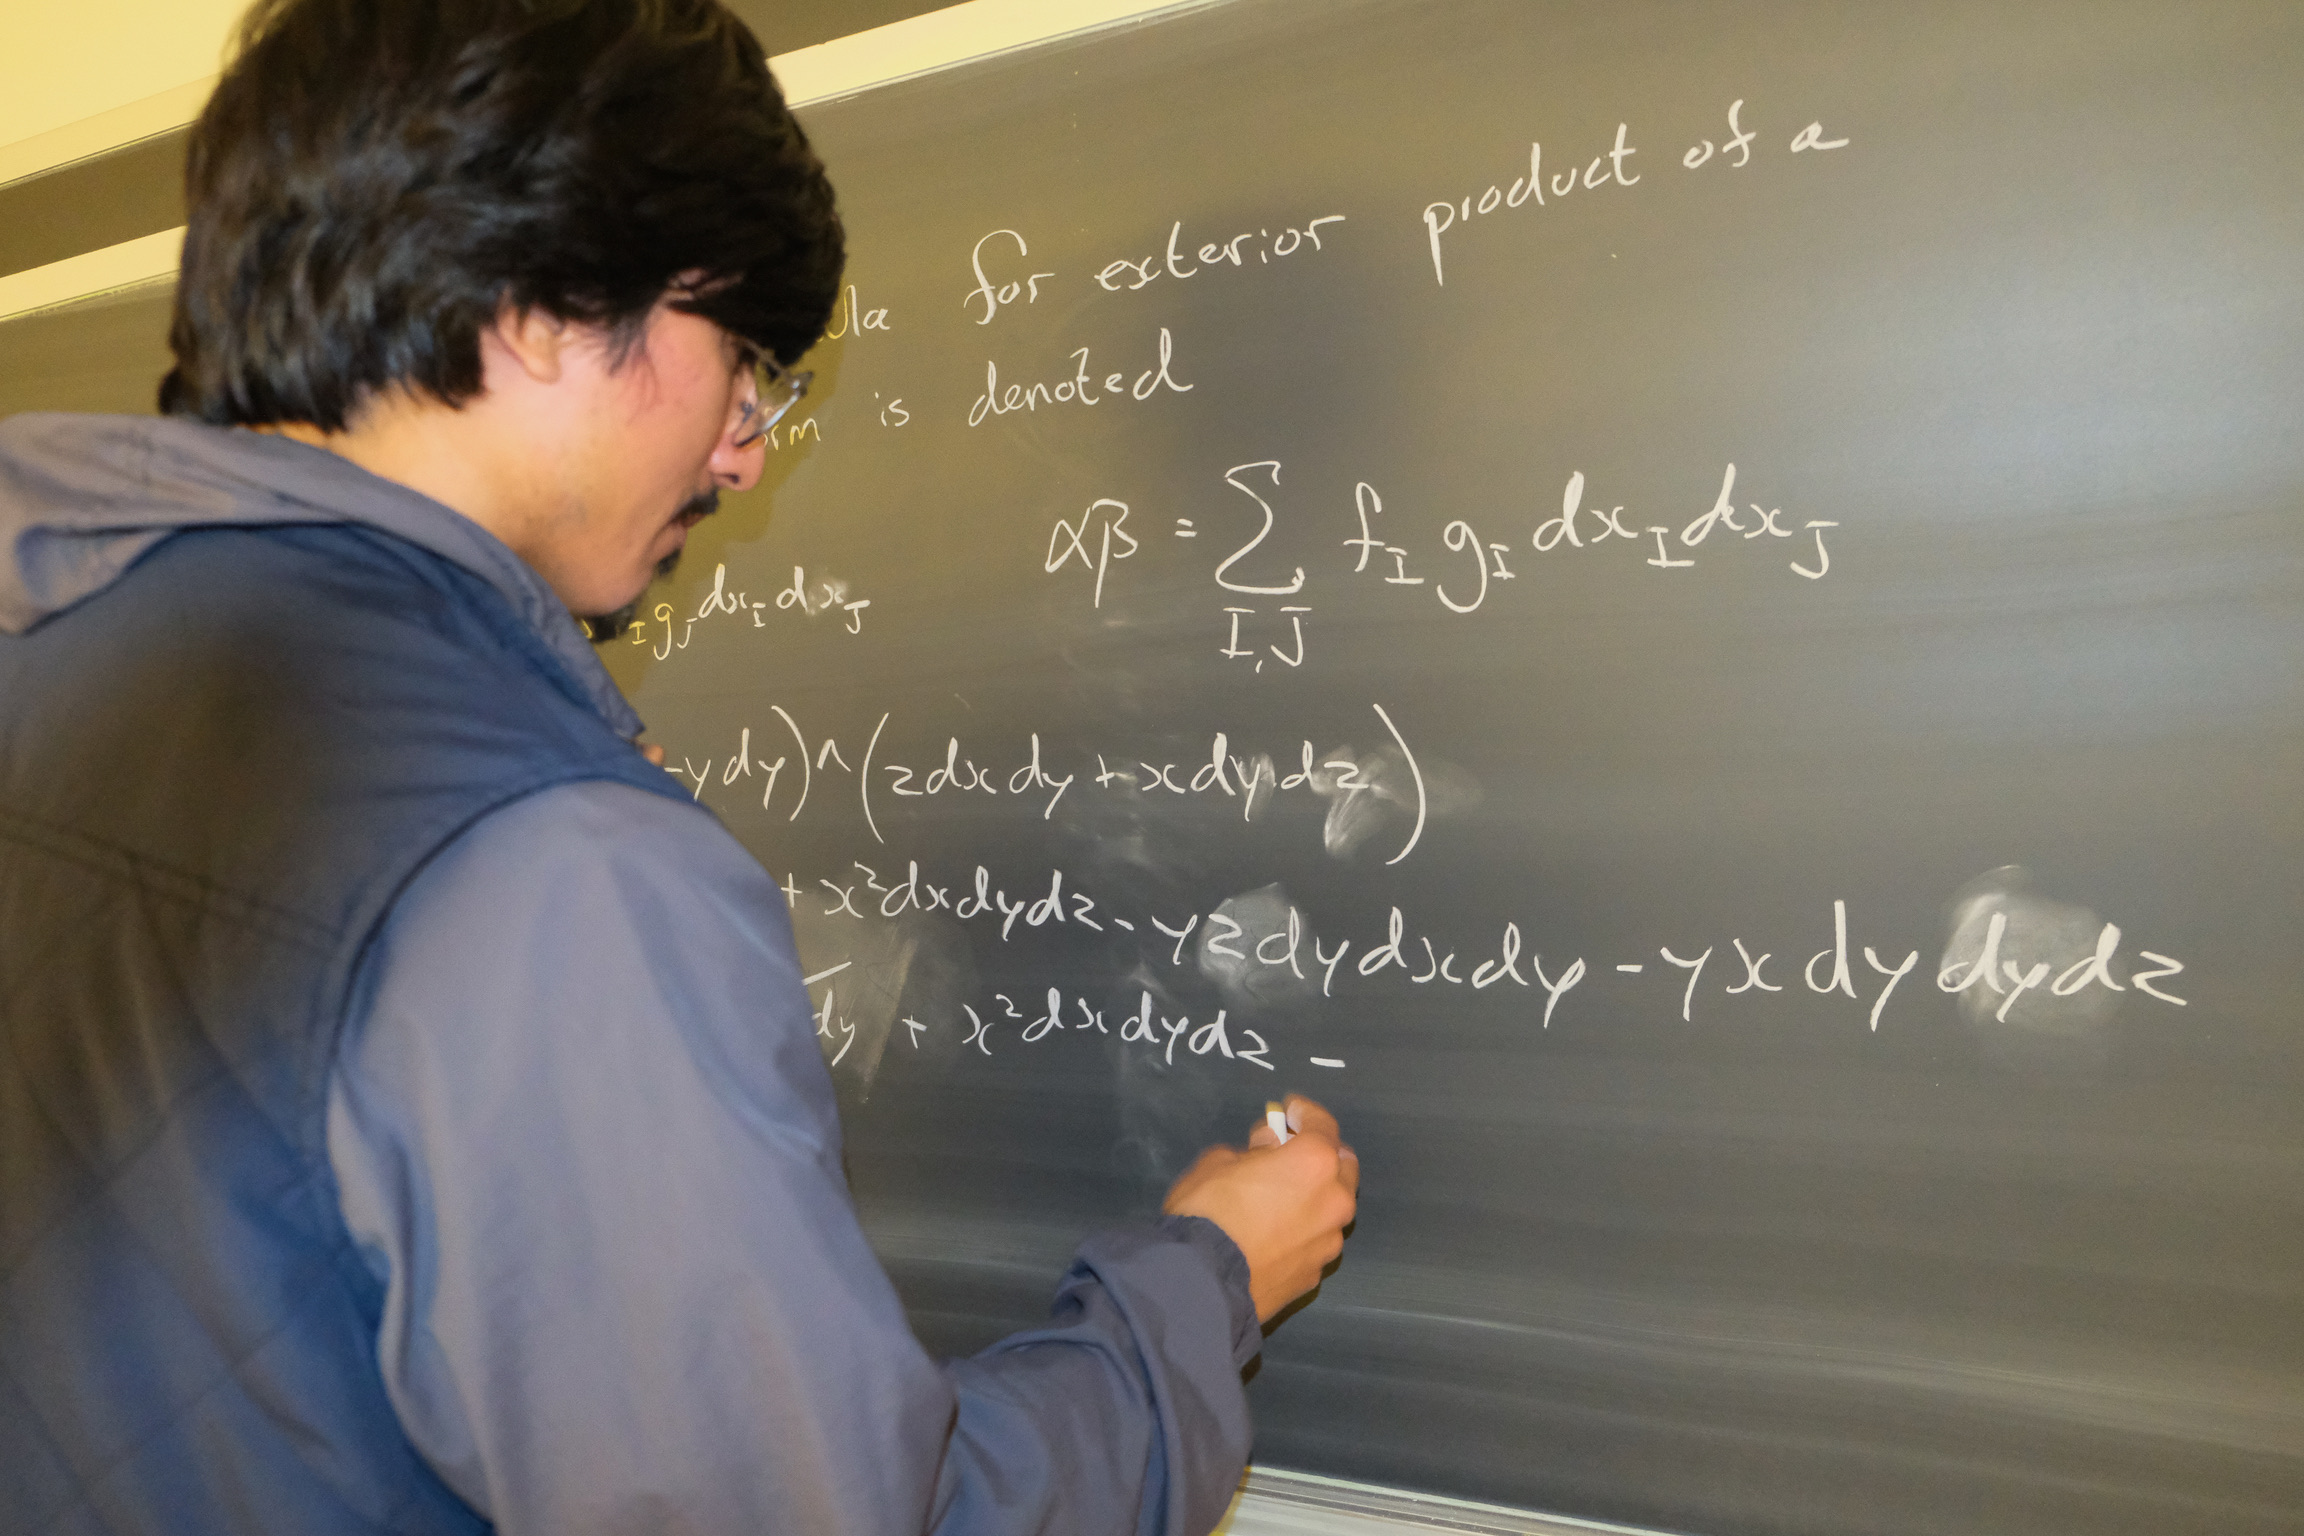 for exterior product of a
is denoted
αβ = Σ_{I,J} f_I g_I dx_I dx_J
_I g_J dx_I dx_J
-ydy)^(zdxdy + xdydz)
+ x²dxdydz - yzdydxdy - yxdydydz
dy + x²dxdydz -